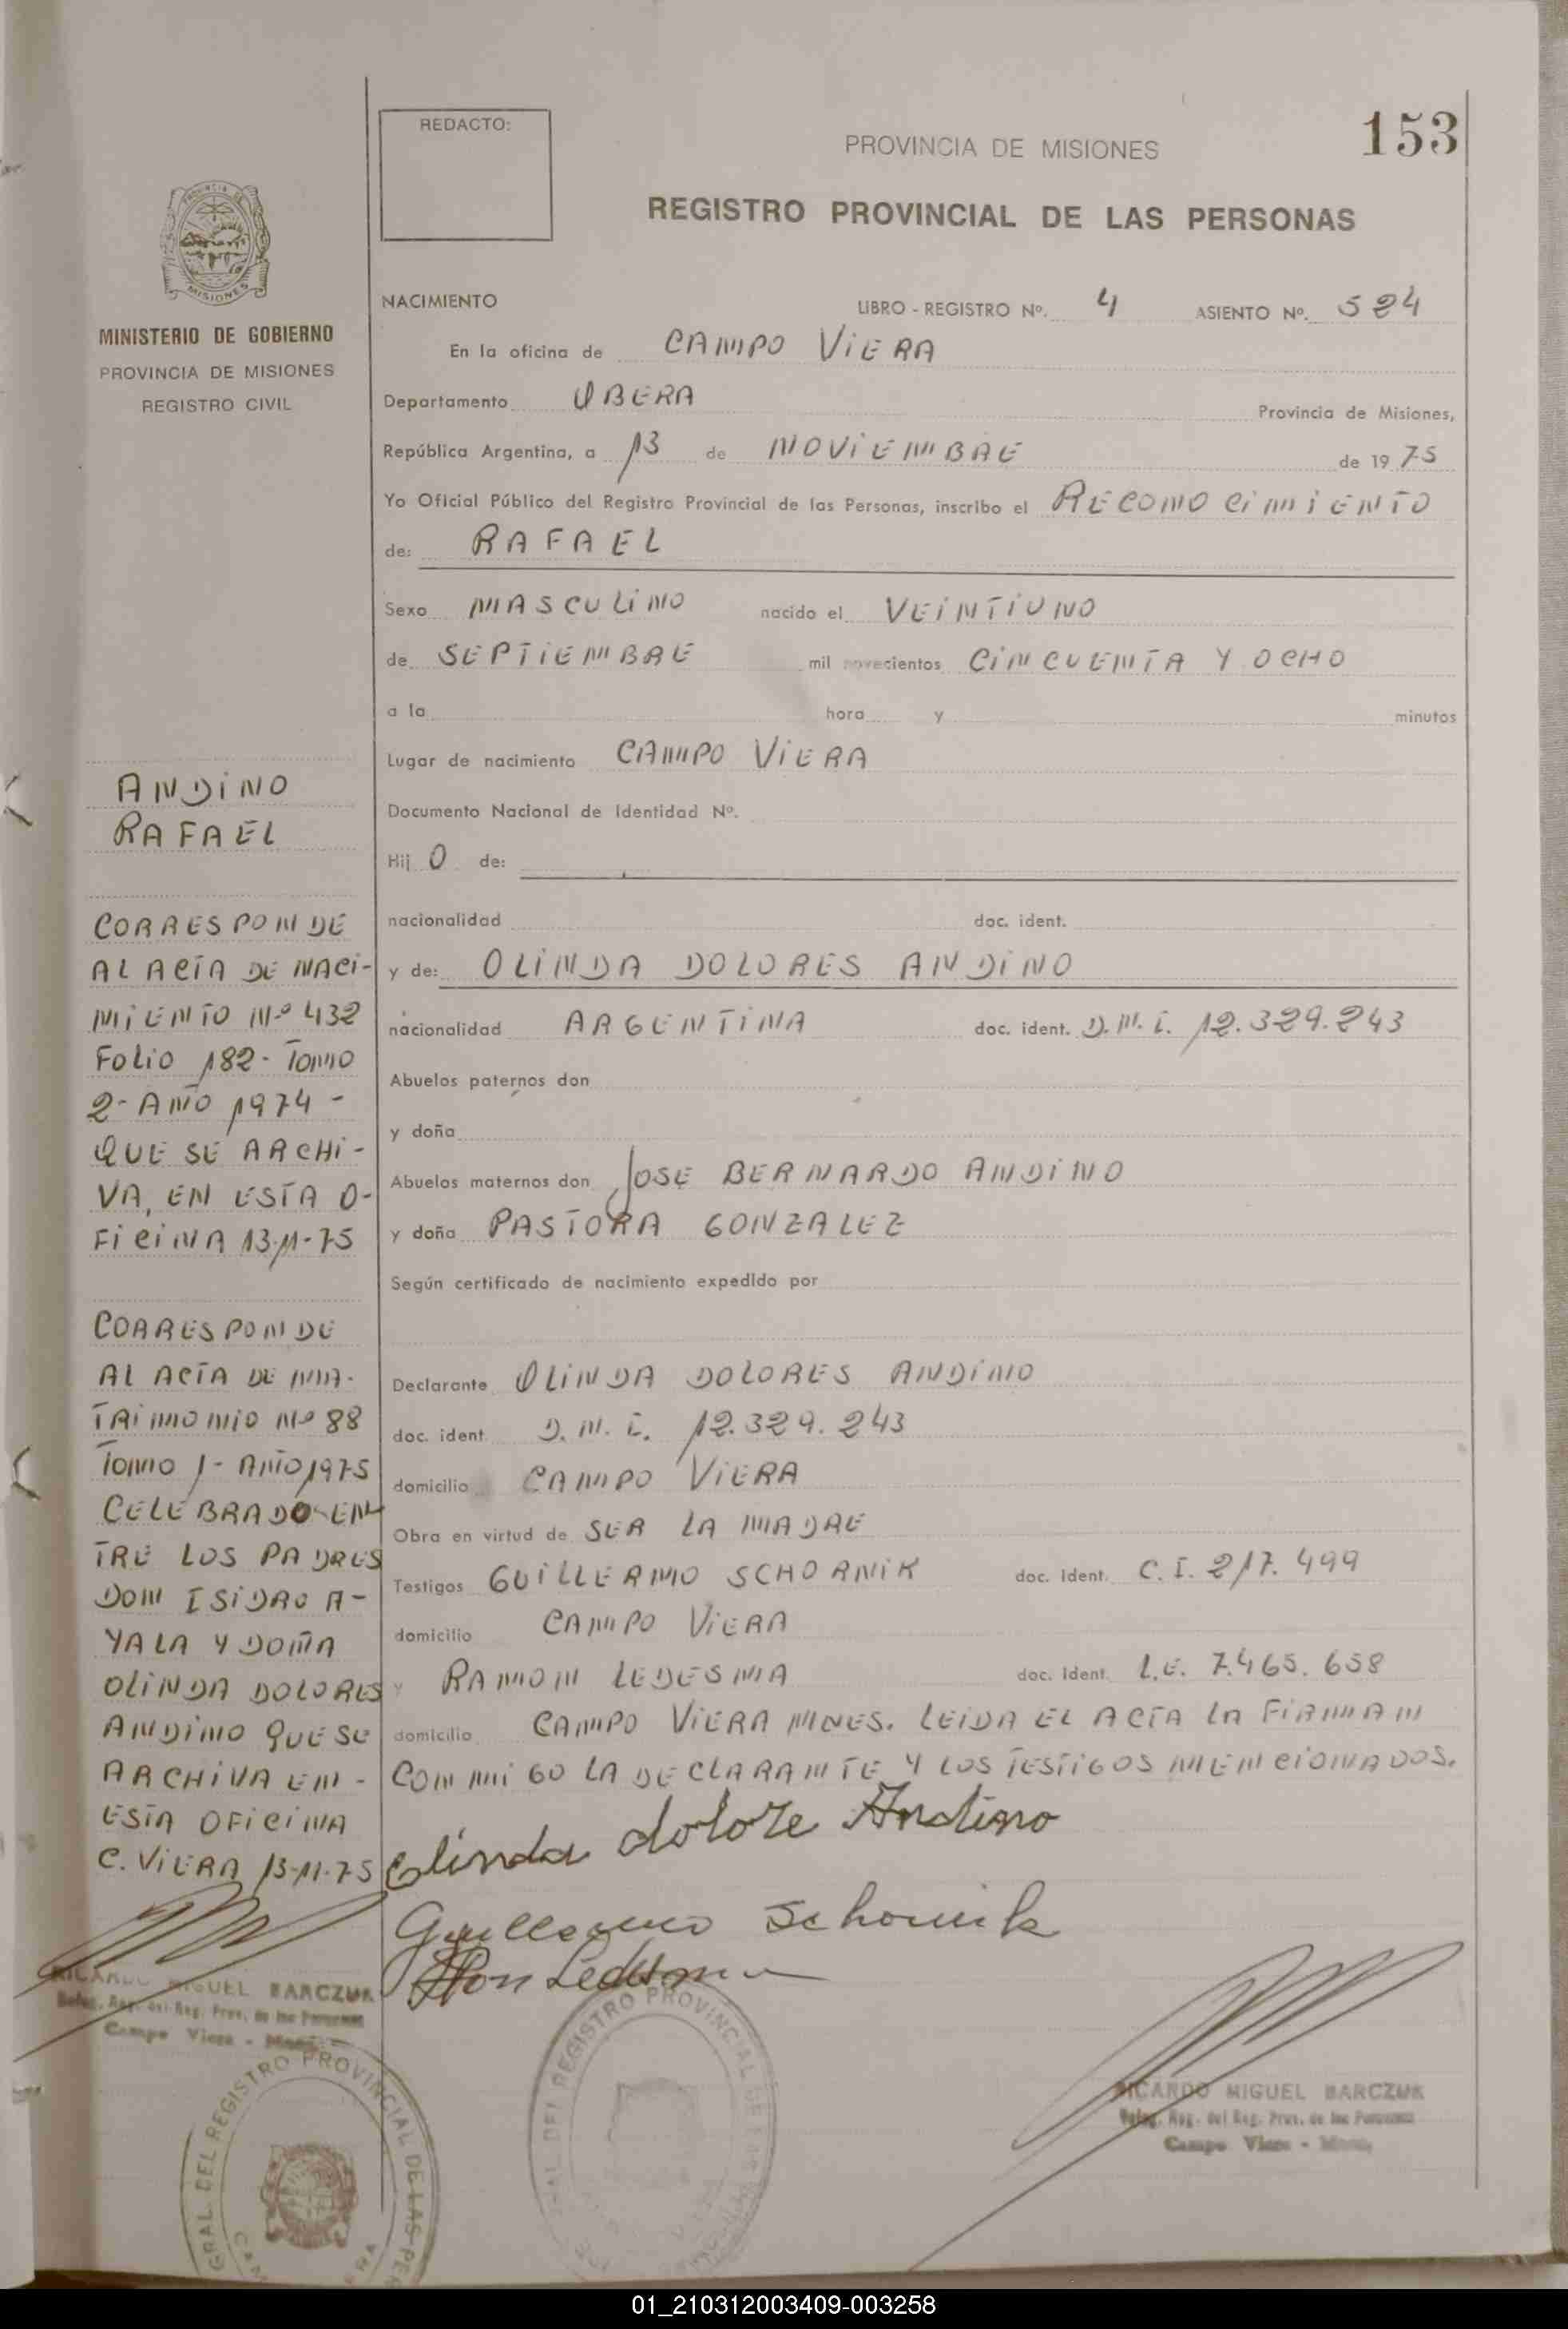 REDACTO:
PROVINCIA DE MISIONES
153
REGISTRO PROVINCIAL DE LAS PERSONAS
PROVINCIA DE
MISIONES
MINISTERIO DE GOBIERNO
PROVINCIA DE MISIONES
REGISTRO CIVIL
NACIMIENTO
LIBRO - REGISTRO Nº. 4 ASIENTO Nº. 524
En la oficina de CAMPO VIERA
Departamento OBERA Provincia de Misiones,
República Argentina, a 13 de NOVIEMBRE de 1975
Yo Oficial Público del Registro Provincial de las Personas, inscribo el RECONOCIMIENTO
de: RAFAEL
Sexo MASCULINO nacido el VEINTIUNO
de SEPTIEMBRE mil novecientos CINCUENTA Y OCHO
a la hora y minutos
Lugar de nacimiento CAMPO VIERA
Documento Nacional de Identidad Nº.
Hij O de:
nacionalidad doc. ident.
y de: OLINDA DOLORES ANDINO
nacionalidad ARGENTINA doc. ident. D.N.I. 12.329.243
Abuelos paternos don
y doña
Abuelos maternos don JOSE BERNARDO ANDINO
y doña PASTORA GONZALEZ
Según certificado de nacimiento expedido por
Declarante OLINDA DOLORES ANDINO
doc. ident. D.N.I. 12.329.243
domicilio CAMPO VIERA
Obra en virtud de SER LA MADRE
Testigos GUILLERMO SCHORNIK doc. ident. C.I. 217.499
domicilio CAMPO VIERA
y RAMON LEDESMA doc. ident. L.E. 7.465.658
domicilio CAMPO VIERA MNES. LEIDA EL ACTA LA FIRMAN
CONMIGO LA DECLARANTE Y LOS TESTIGOS MENCIONADOS.
Olinda dolore Andino
Guillermo Schornik
Ledesma
ANDINO
RAFAEL
CORRESPONDE
AL ACTA DE NACI-
MIENTO Nº 432
FOLIO 182- TOMO
2- AÑO 1974 -
QUE SE ARCHI-
VA, EN ESTA O-
FICINA 13-11-75
CORRESPONDE
AL ACTA DE MA-
TRIMONIO Nº 88
TOMO 1- AÑO 1975
CELEBRADO EN
TRE LOS PADRES
DON ISIDRO A-
YALA Y DOÑA
OLINDA DOLORES
ANDINO QUE SE
ARCHIVA EN -
ESTA OFICINA
C. VIERA 13-11-75
RICARDO MIGUEL BARCZUK
Deleg. Reg. del Reg. Prov. de las Personas
Campo Viera -
GRAL. DEL REGISTRO PROVINCIAL DE LAS PE
DEL REGISTRO PROVINCIAL DE
RICARDO MIGUEL BARCZUK
Deleg. Reg. del Reg. Prov. de las Personas
Campo Viera -
01_210312003409-003258